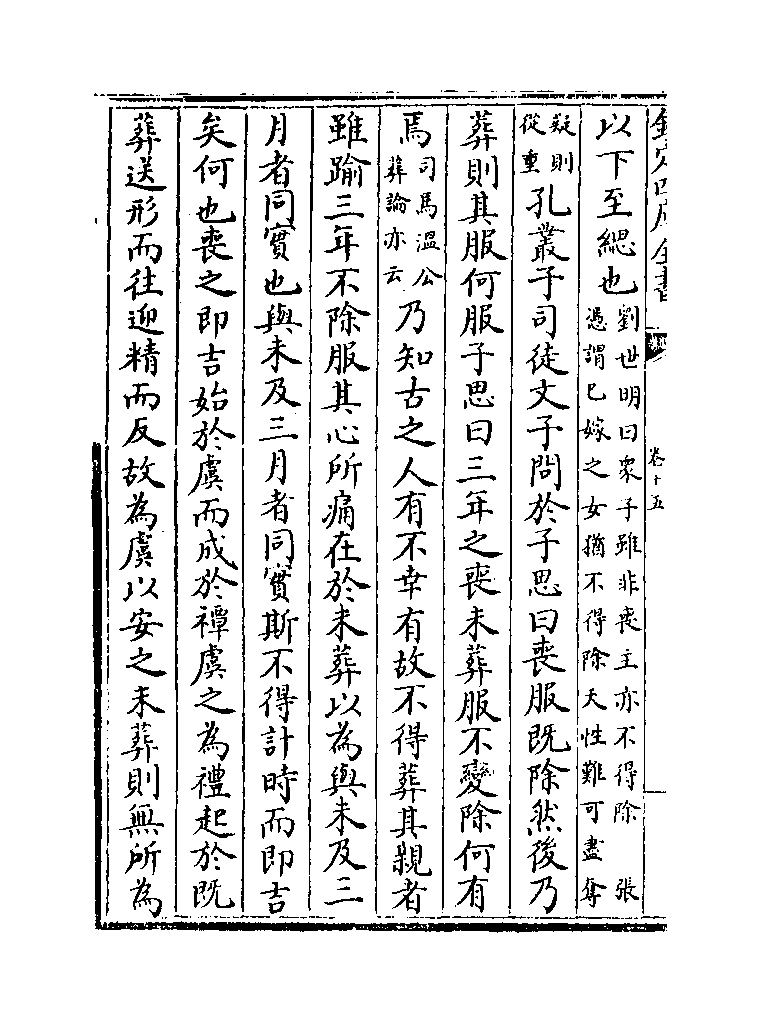 欽定四庫全書
卷十五
以下至緦也劉世明曰衆子雖非喪主亦不得除 張憑謂已嫁之女猶不得除天性難可盡奪
疑則從重孔叢子司徒文子問於子思曰喪服既除然後乃
葬則其服何服子思曰三年之喪未葬服不變除何有
焉司馬溫公葬論亦云乃知古之人有不幸有故不得葬其親者
雖踰三年不除服其心所痛在於未葬以為與未及三
月者同實也與未及三月者同實斯不得計時而即吉
矣何也喪之即吉始於虞而成於禫虞之為禮起於既
葬送形而往迎精而反故為虞以安之未葬則無所為